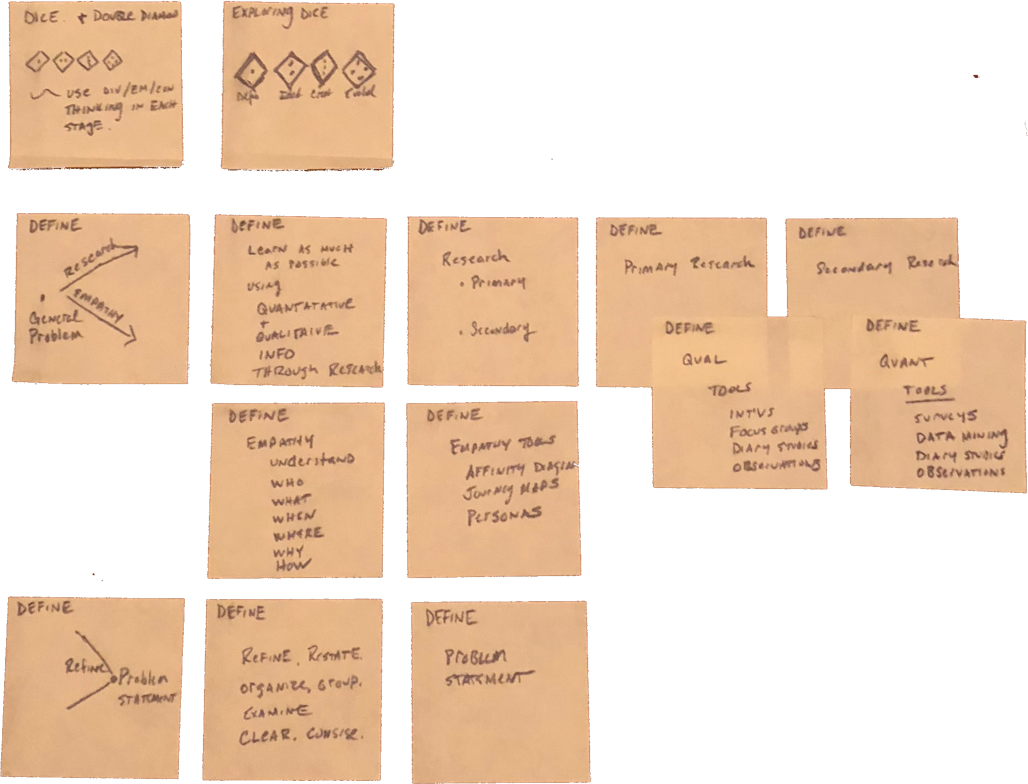 DICE + DOUBLE DIAMOND
USE DIV/EM/CON
THINKING IN EACH
STAGE.
EXPLORING DICE
DEFINE
RESEARCH
EMPATHY
General
Problem
DEFINE
LEARN AS MUCH
AS POSSIBLE
USING
QUANTATATIVE
+
QUALITATIVE
INFO
THROUGH RESEARCH
DEFINE
Research
• Primary
• Secondary
DEFINE
Primary Research
DEFINE
Secondary Research
DEFINE
QUAL
TOOLS
INT'VS
FOCUS GROUPS
DIARY STUDIES
OBSERVATIONS
DEFINE
QUANT
TOOLS
SURVEYS
DATA MINING
DIARY STUDIES
OBSERVATIONS
DEFINE
EMPATHY
UNDERSTAND
WHO
WHAT
WHEN
WHERE
WHY
HOW
DEFINE
EMPATHY TOOLS
AFFINITY DIAGRAMS
JOURNEY MAPS
PERSONAS
DEFINE
REFINE
Problem
STATEMENT
DEFINE
REFINE, RESTATE.
ORGANIZE, GROUP.
EXAMINE
CLEAR. CONSISE.
DEFINE
PROBLEM
STATMENT